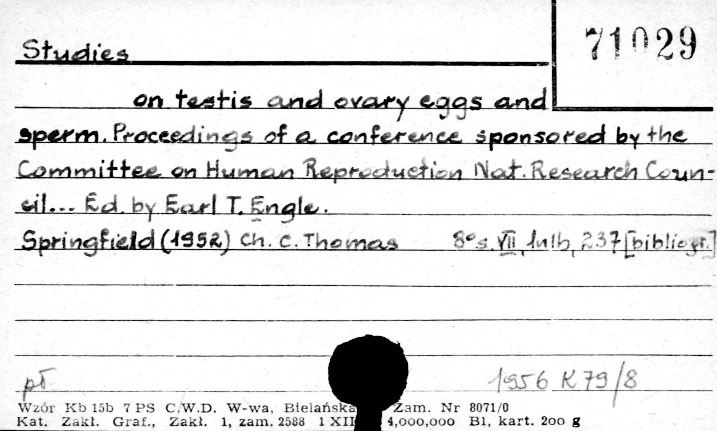 71029
Studies
on testis and ovary eggs and
sperm. Proceedings of a conference sponsored by the
Committee on Human Reproduction Nat. Research Coun-
cil... Ed. by Earl T. Engle.
Springfield (1952) Ch. C. Thomas 8° s. VII, 1nlb, 237 [bibliogr.]
pł 1956 K 79/8
Wzór Kb 15b 7 PS C.W.D. W-wa, Bielańska Zam. Nr 8071/0
Kat. Zakł. Graf., Zakł. 1, zam. 2588 1 XII 4,000,000 B1, kart. 200 g